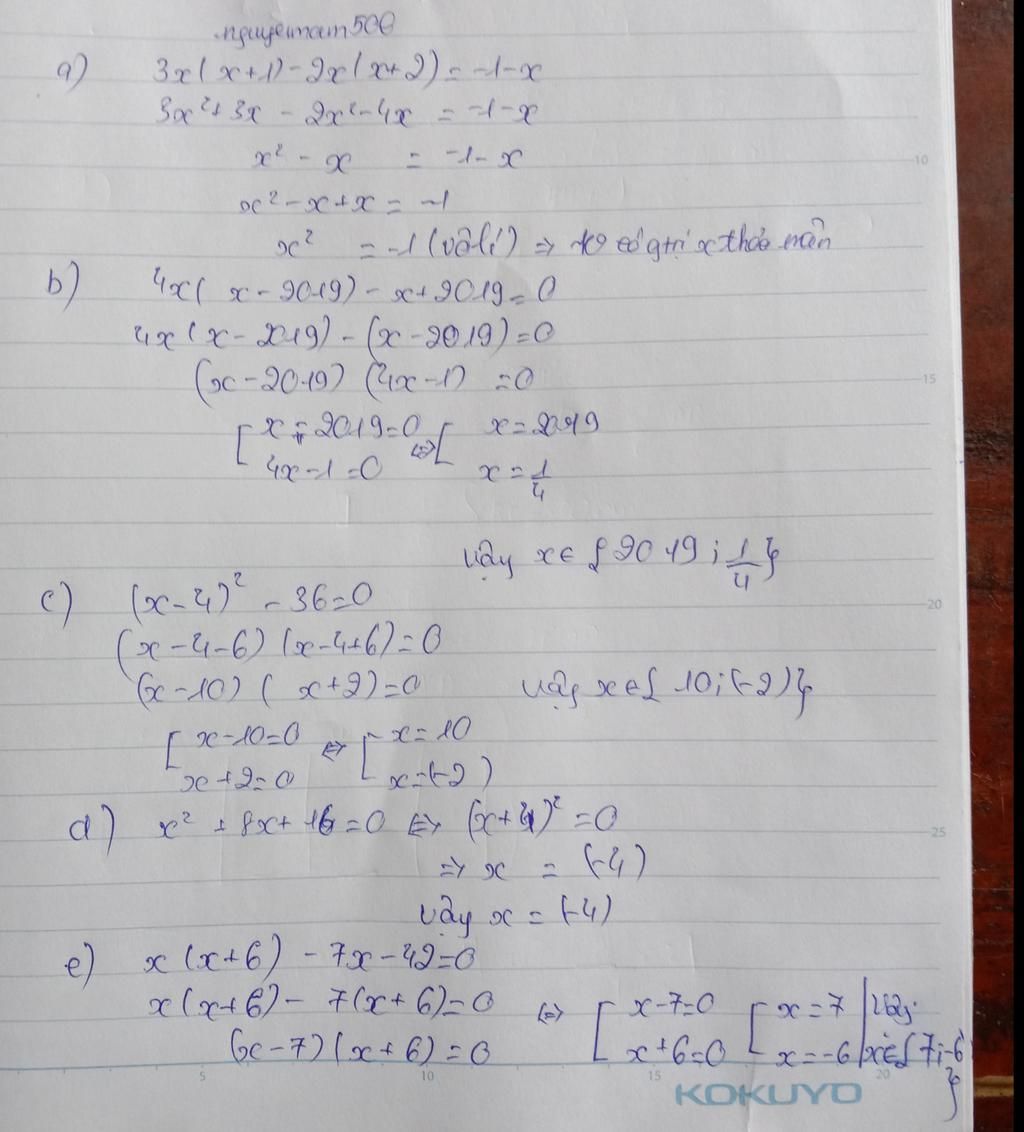 nguyetnam506
a) 3x(x+1)-2x(x+2)=-1-x
3x²+3x-2x²-4x=-1-x
x²-x=-1-x
x²-x+x=-1
x²=-1 (vô lí) => ko có gtrị x thỏa mãn
b) 4x(x-2019)-x+2019=0
4x(x-2019)-(x-2019)=0
(x-2019)(4x-1)=0
[ x-2019=0 <=> [ x=2019
4x-1=0 x=1/4
Vậy x∈{2019; 1/4}
c) (x-4)²-36=0
(x-4-6)(x-4+6)=0
(x-10)(x+2)=0 Vậy x∈{10;(-2)}
[ x-10=0 <=> [ x=10
x+2=0 x=(-2)
d) x²+8x+16=0 <=> (x+4)²=0
=> x=(-4)
Vậy x=(-4)
e) x(x+6)-7x-42=0
x(x+6)-7(x+6)=0 <=> [ x-7=0 [ x=7 | Vậy
(x-7)(x+6)=0 x+6=0 x=-6 | x∈{7;-6
}
5 10 15 20
KOKUYO
10
15
20
25